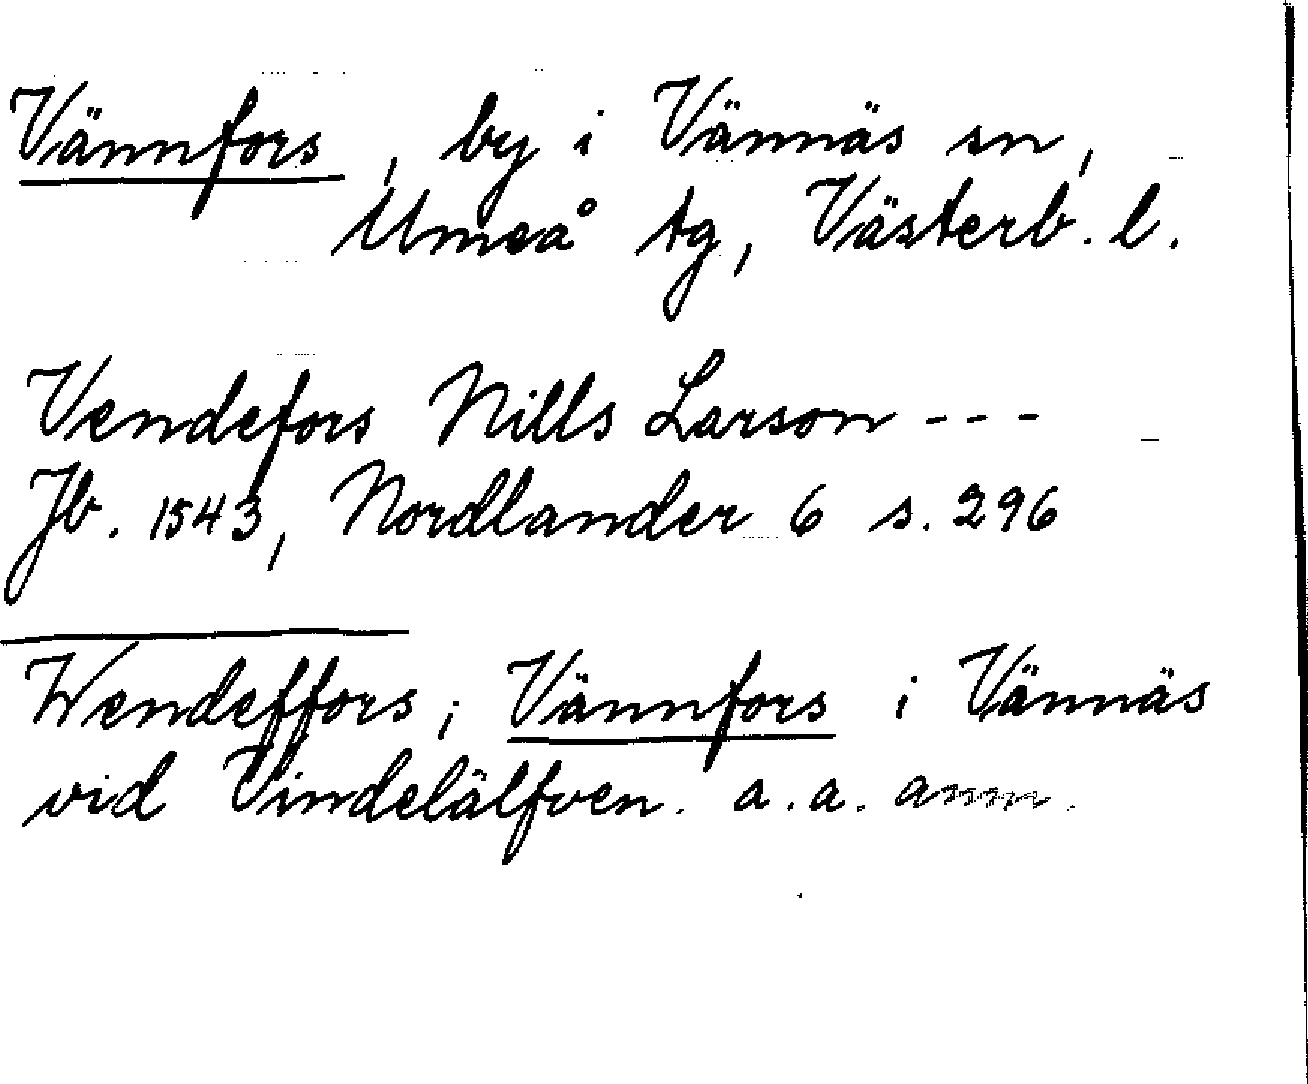 Vännfors, by i Vännäs sn,
Umeå tg, Västerb. l.
Vendefors Nills Larson ---
Jb. 1543, Nordlander 6 s. 296
Wendeffors, Vännfors i Vännäs
vid Vindelälfven. a. a. anm.